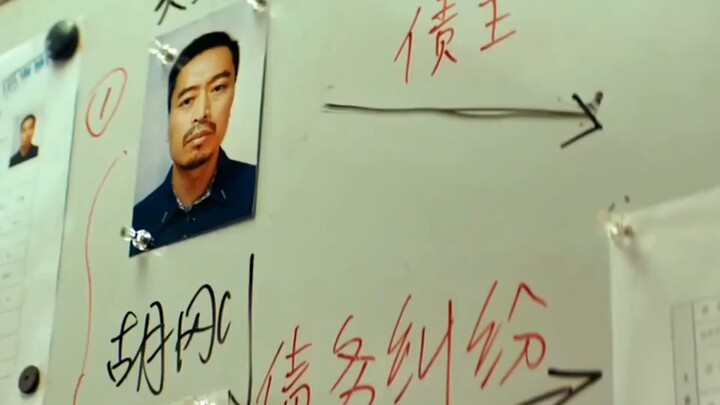 债主
①
胡刚
债务纠纷